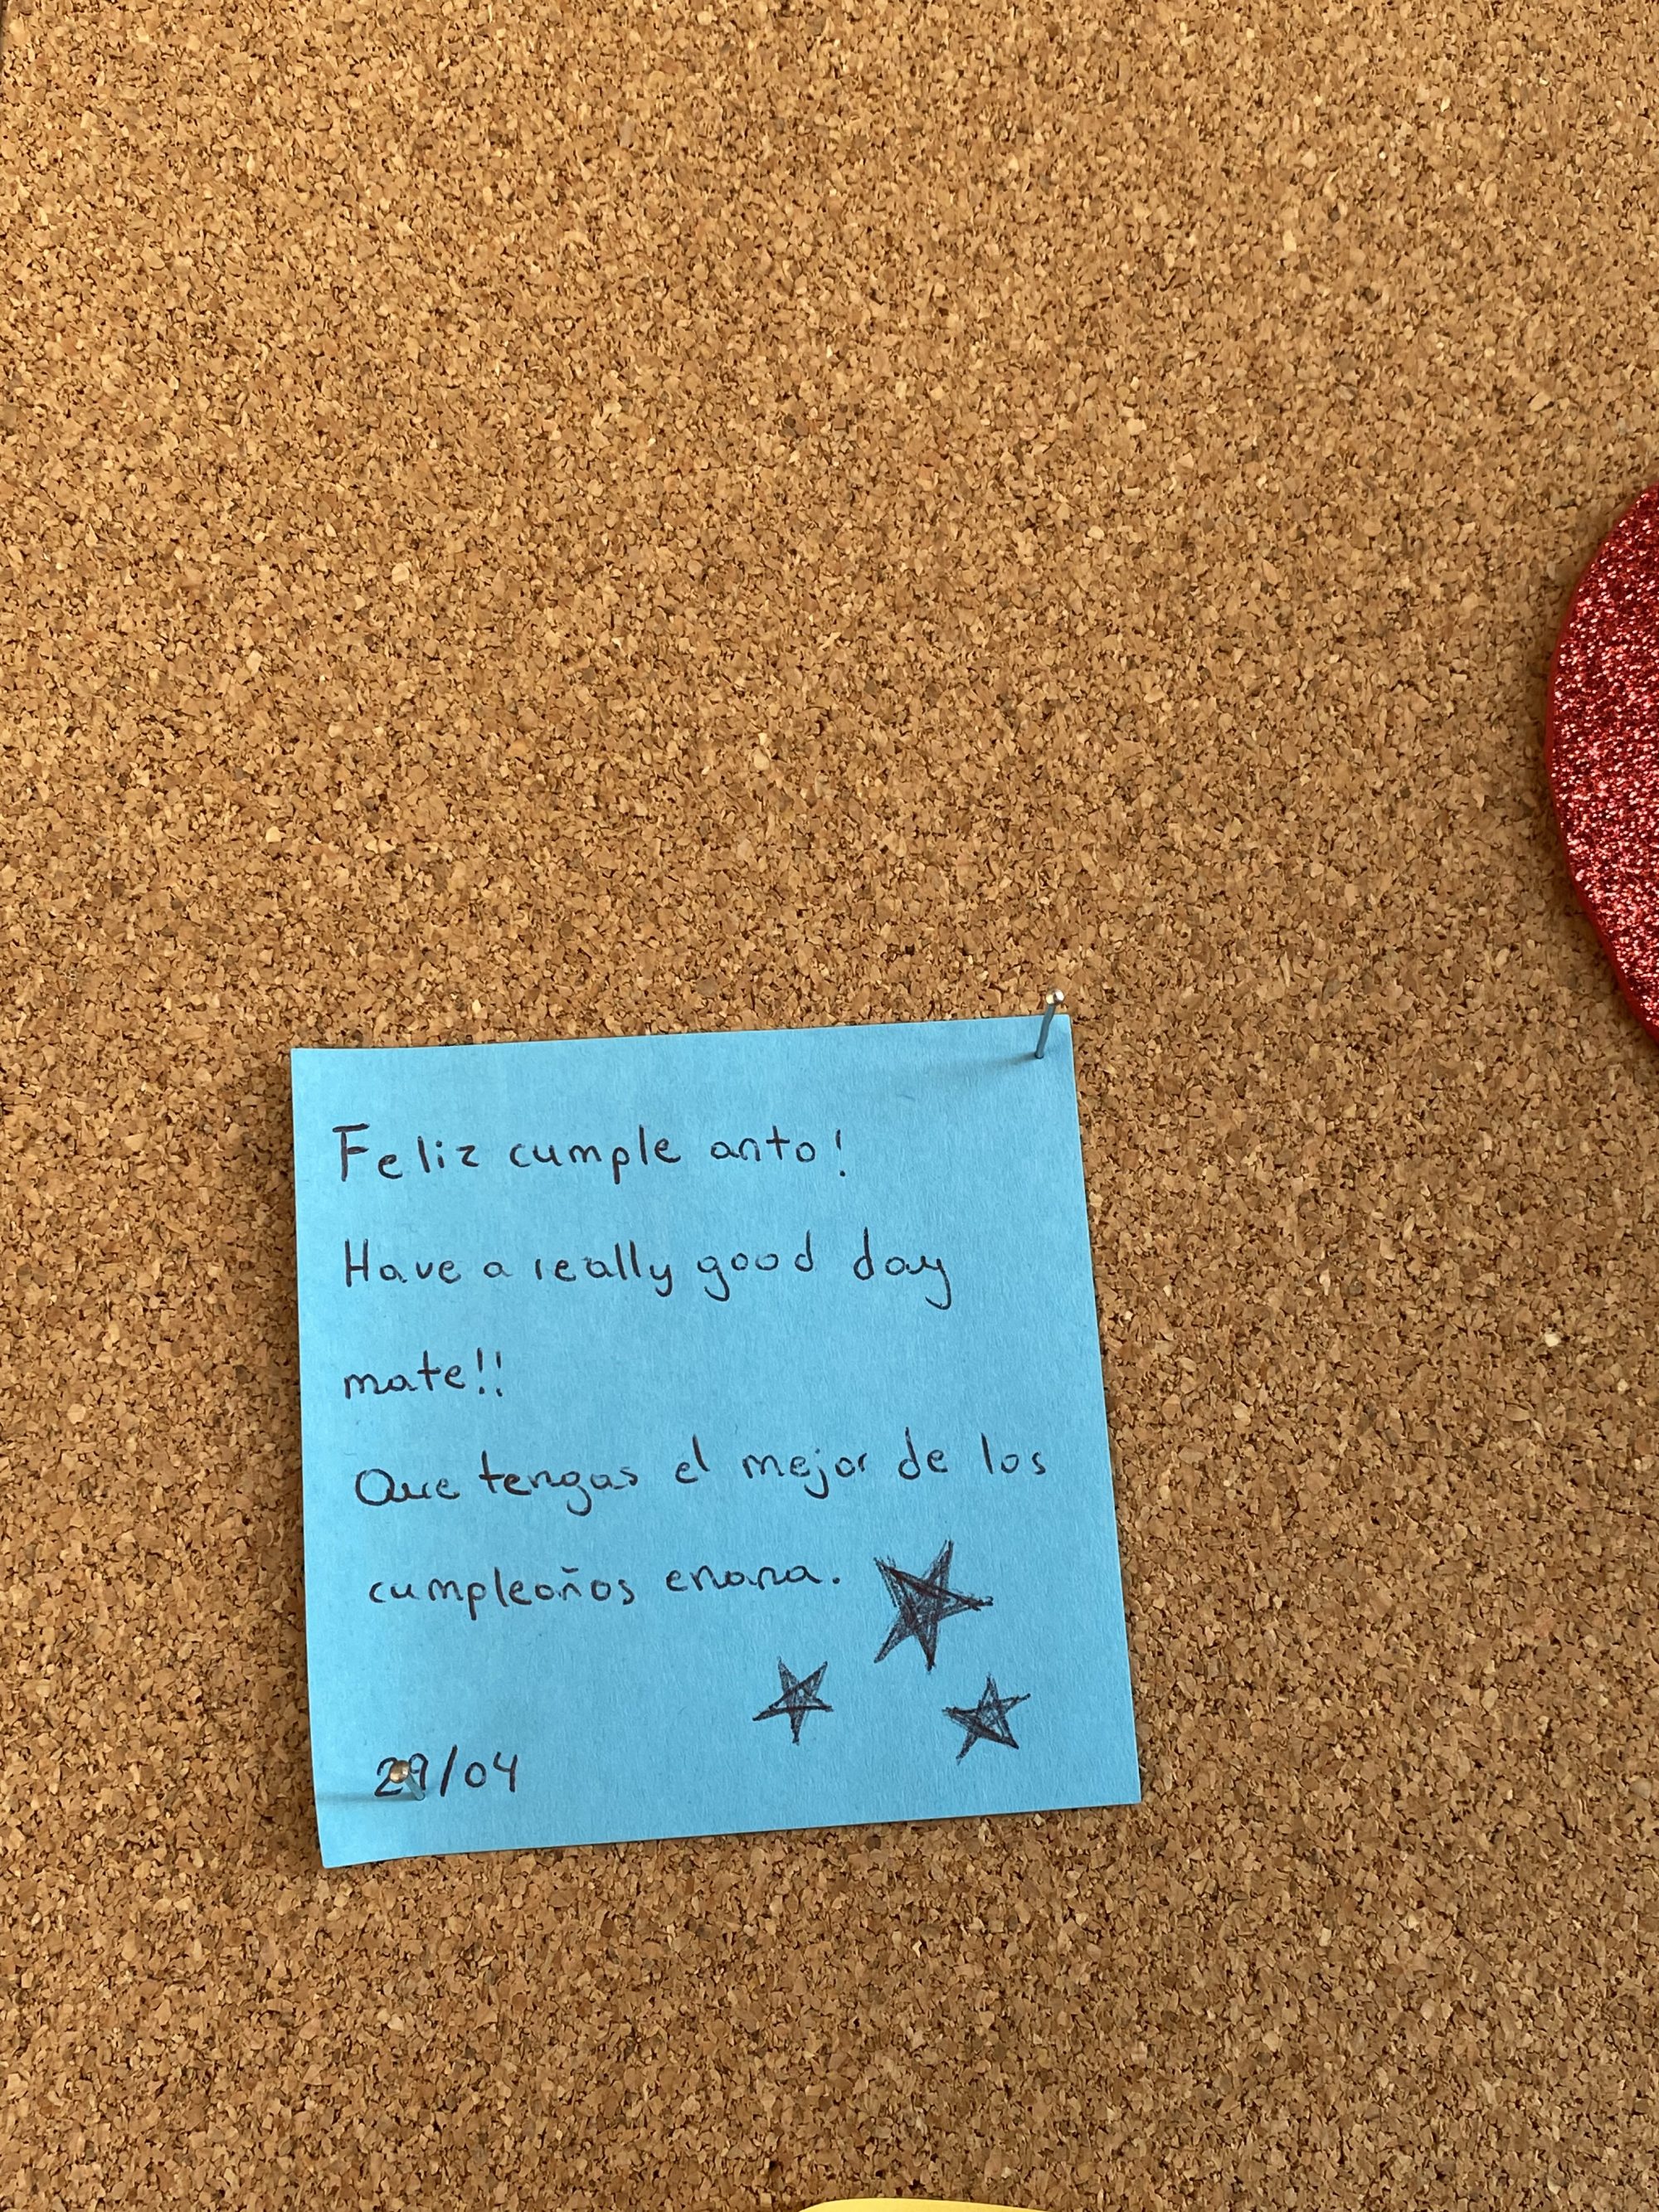 Feliz cumple anto!
Have a really good day
mate!!
Que tengas el mejor de los
cumpleaños enana.
29/04